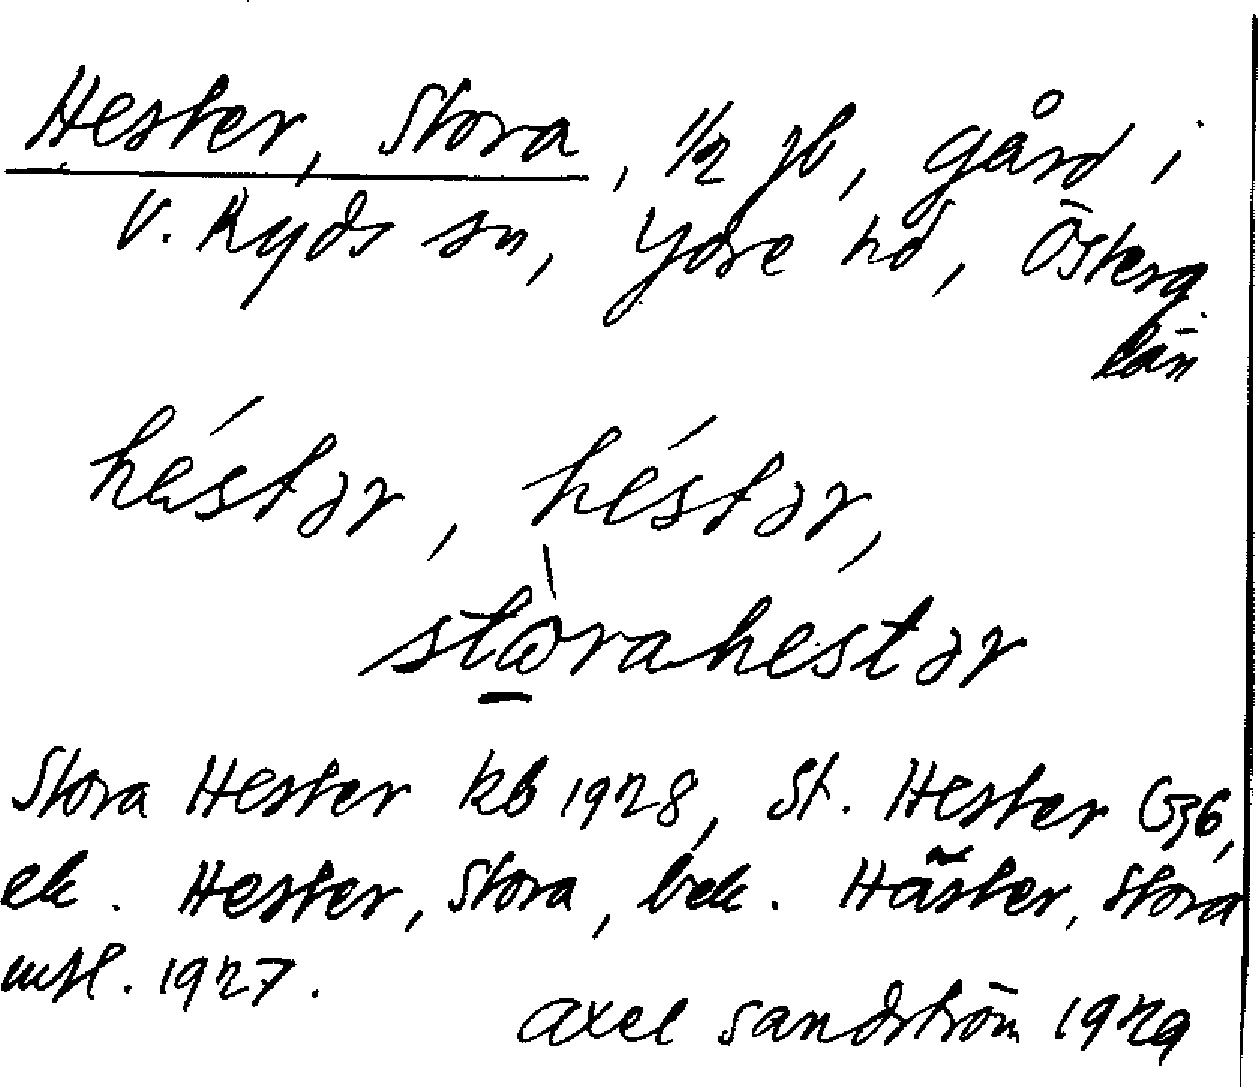 Hester, Stora, 1/2 jb, gård i
V. Ryds sn, Ydre hd, Österg.
län
héstər, héstər,
stɷ̀rahestər
Stora Hester kb 1928, St. Hester G36,
ek. Hester, Stora, bek. Häster, Stora
mtl. 1927.
Axel Sandström 1929